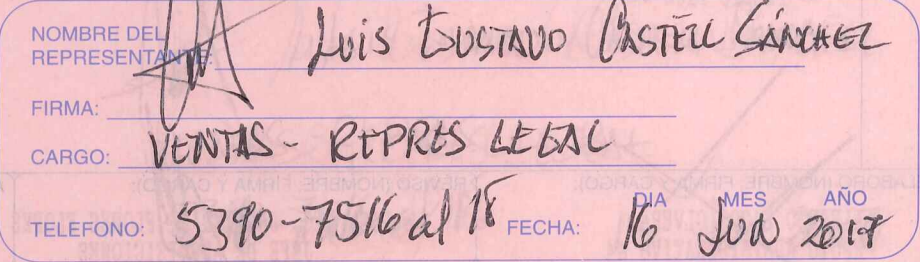 NOMBRE DEL
REPRESENTANTE: Luis Gustavo Castell Sánchez
FIRMA:
CARGO: VENTAS - REPRES LEGAL
TELEFONO: 5390-7516 al 18 FECHA: DIA 16 MES JUN AÑO 2017